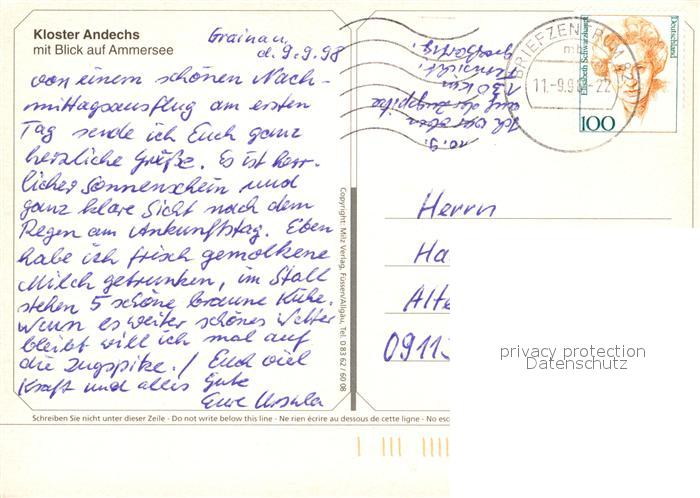 Kloster Andechs
mit Blick auf Ammersee
Grainau,
d. 9.9.98
von einem schönen Nach-
mittagsausflug am ersten
Tag sende ich Euch ganz
herzliche Grüße. Es ist herr-
licher Sonnenschein und
ganz klare Sicht nach dem
Regen am Ankunftstag. Eben
habe ich frisch gemolkene
Milch getrunken, im Stall
stehen 5 schöne braune Kühe.
Wenn es weiter schönes Wetter
bleibt will ich mal auf
die Zugspitze! Euch viel
Kraft und alles Gute
Eure Ursula
Schreiben Sie nicht unter dieser Zeile - Do not write below this line - Ne rien écrire au dessous de cette ligne - No esc
Copyright: Milz Verlag, Füssen/Allgäu, Tel. 0 83 62 / 60 08
10.9.
Ich war oben
auf der Zugspitze
130 km
Fernsicht.
Großartig!
BRIEFZENTRUM 82
11.-9.98-22
Deutschland
Elisabeth Schwarzhaupt
100
Herrn
Ha
Alte
0911
privacy protection
Datenschutz